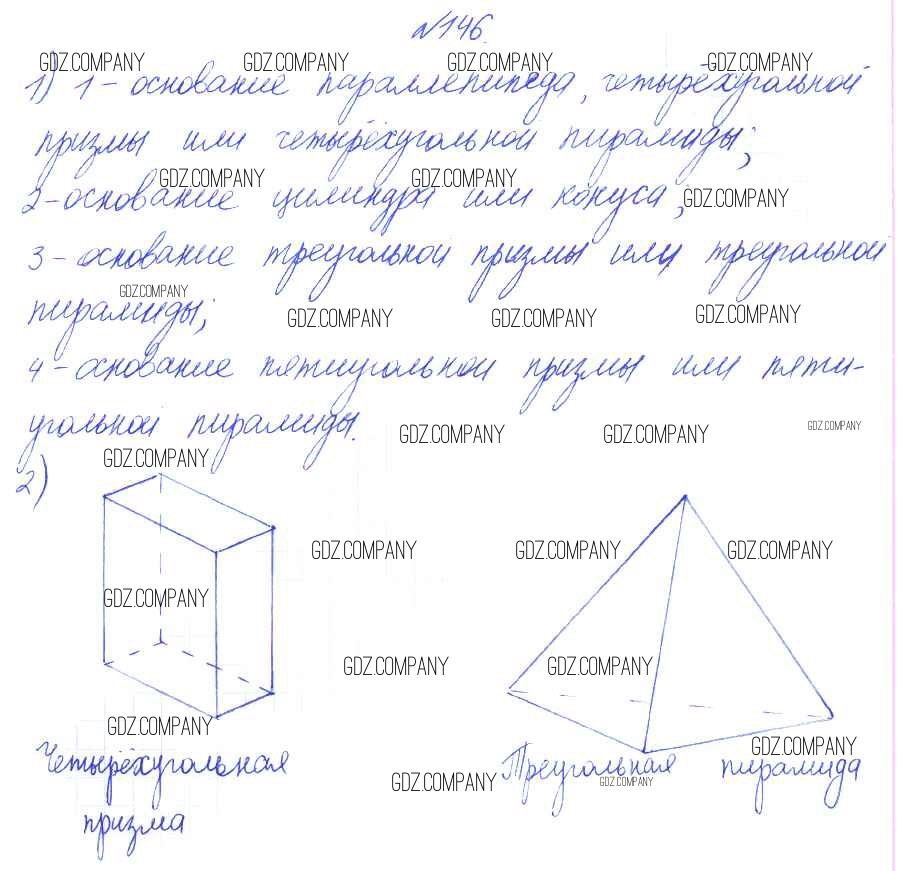 №146.
GDZ.COMPANY GDZ.COMPANY GDZ.COMPANY GDZ.COMPANY
1) 1 – основание параллепипеда, четырёхугольной
призмы или четырёхугольной пирамиды;
GDZ.COMPANY GDZ.COMPANY
2 – основание цилиндра или конуса;
GDZ.COMPANY
3 – основание треугольной призмы или треугольной
GDZ.COMPANY
пирамиды;
GDZ.COMPANY GDZ.COMPANY GDZ.COMPANY
4 – основание пятиугольной призмы или пяти-
угольной пирамиды.
GDZ.COMPANY GDZ.COMPANY GDZ.COMPANY
GDZ.COMPANY
2)
GDZ.COMPANY GDZ.COMPANY GDZ.COMPANY
GDZ.COMPANY
GDZ.COMPANY GDZ.COMPANY
GDZ.COMPANY
GDZ.COMPANY
Четырёхугольная
призма
Треугольная пирамида
GDZ.COMPANY GDZ.COMPANY